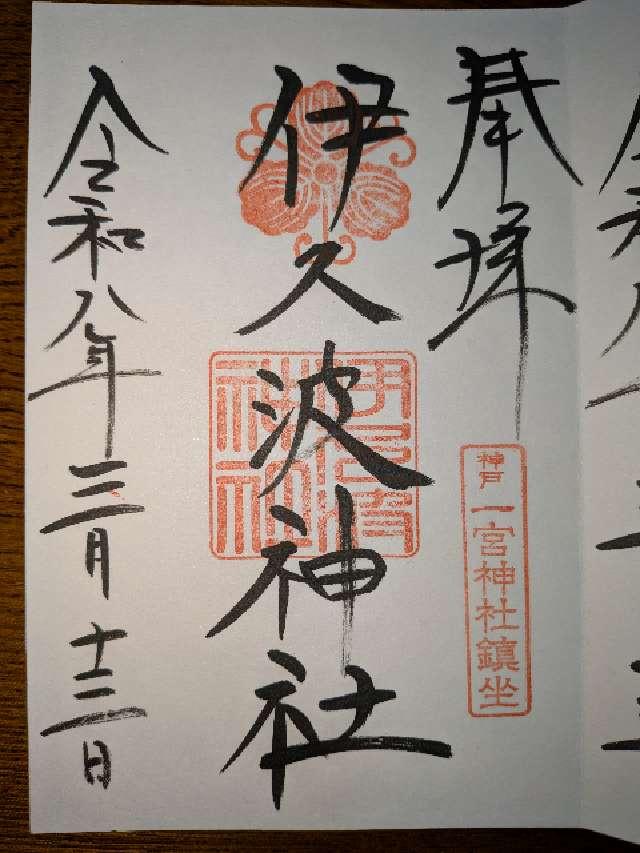 奉拝
神戸 一宮神社鎮坐
伊久波神社
令和八年三月十三日